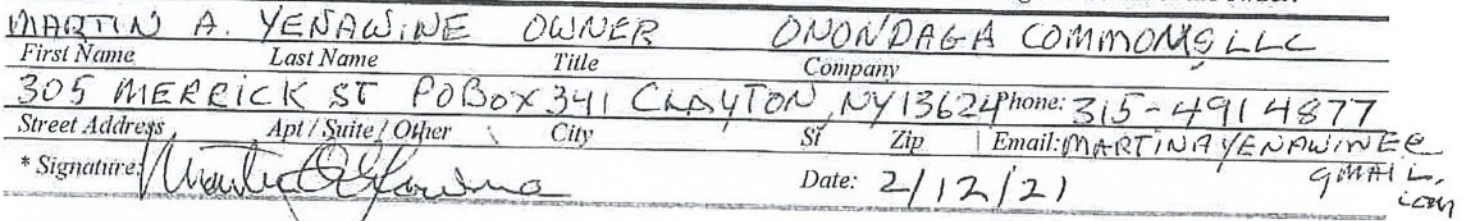 MARTIN A. YENAWINE OWNER ONONDAGA COMMONS LLC
First Name Last Name Title Company
305 MERRICK ST PO BOX 341 CLAYTON, NY 13624 Phone: 315-491 4877
Street Address Apt / Suite / Other City St Zip Email: MARTINAYENAWINE@
gMAIL.
com
* Signature: Date: 2/12/21